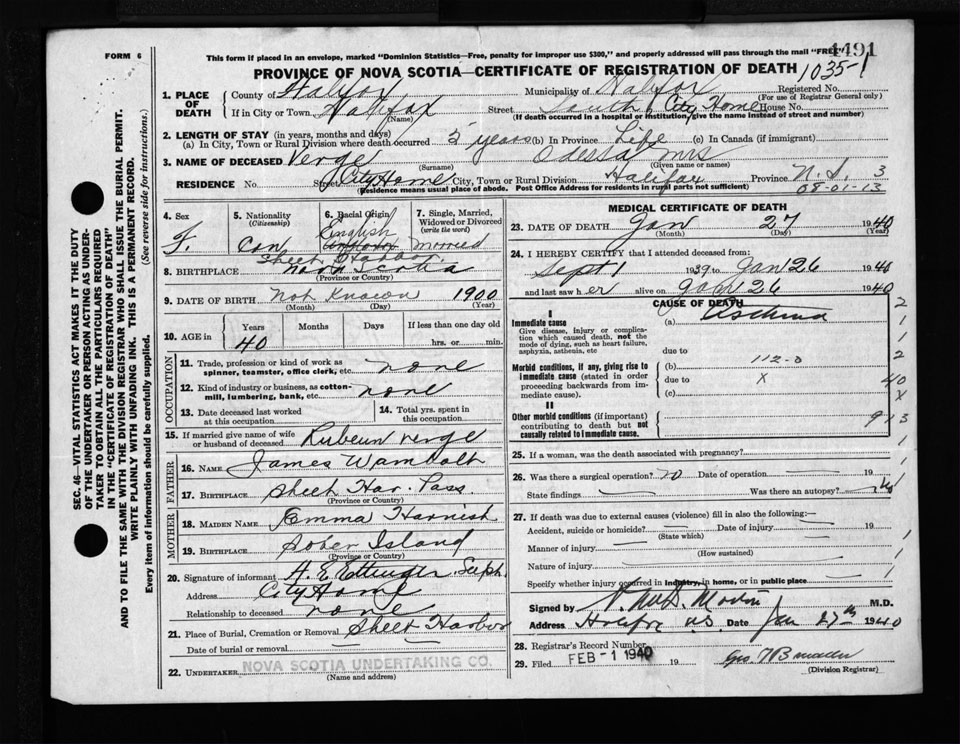 FORM 6
This form if placed in an envelope, marked "Dominion Statistics—Free, penalty for improper use $300," and properly addressed will pass through the mail "FREE"
4491
PROVINCE OF NOVA SCOTIA—CERTIFICATE OF REGISTRATION OF DEATH
1035
1. PLACE OF DEATH County of Halifax Municipality of Halifax Registered No.
(For use of Registrar General only)
If in City or Town Halifax Street South City Home House No.
(Name) (If death occurred in a hospital or institution, give name instead of street and number)
2. LENGTH OF STAY (in years, months and days)
(a) In City, Town or Rural Division where death occurred 2 years (b) In Province Life (c) In Canada (if immigrant)
3. NAME OF DECEASED Verge Odessa mrs
(Surname) (Given name or names)
RESIDENCE No. Street City Home City, Town or Rural Division Halifax Province N.S. 3
(Residence means usual place of abode. Post Office Address for residents in rural parts not sufficient) 08-01-13
4. Sex F.
5. Nationality (Citizenship) Can
6. Racial Origin English
7. Single, Married, Widowed or Divorced (write the word) married
8. BIRTHPLACE Sheet Harbor Nova Scotia
(Province or Country)
9. DATE OF BIRTH not Known 1900
(Month) (Day) (Year)
10. AGE in Years Months Days If less than one day old
40 hrs. or min.
OCCUPATION
11. Trade, profession or kind of work as spinner, teamster, office clerk, etc. none
12. Kind of industry or business, as cotton-mill, lumbering, bank, etc. none
13. Date deceased last worked at this occupation
14. Total yrs. spent in this occupation
15. If married give name of wife or husband of deceased Rubeun verge
FATHER
16. NAME James Wambolt
17. BIRTHPLACE Sheet Har. Pass.
(Province or Country)
MOTHER
18. MAIDEN NAME Emma Harnish
19. BIRTHPLACE Sober Island
(Province or Country)
20. Signature of informant A. E. Ettinger Supt.
Address City Home
Relationship to deceased none
21. Place of Burial, Cremation or Removal Sheet Harbor
Date of burial or removal
22. UNDERTAKER NOVA SCOTIA UNDERTAKING CO.
(Name and address)
MEDICAL CERTIFICATE OF DEATH
23. DATE OF DEATH Jan 27 1940
(Month) (Day) (Year)
24. I HEREBY CERTIFY that I attended deceased from:
Sept 1 1939 to Jan 26 1940
and last saw her alive on Jan 26 1940
CAUSE OF DEATH
I
Immediate cause (a) Asthma
Give disease, injury or complication which caused death, not the mode of dying, such as heart failure, asphyxia, asthenia, etc
due to
Morbid conditions, if any, giving rise to immediate cause (stated in order proceeding backwards from immediate cause)
(b) 112-0
due to x
(c)
II
Other morbid conditions (if important) contributing to death but not causally related to immediate cause.
2
1
1
2
40
x
913
1
25. If a woman, was the death associated with pregnancy?
26. Was there a surgical operation? no Date of operation 19
State findings Was there an autopsy?
27. If death was due to external causes (violence) fill in also the following:—
Accident, suicide or homicide? Date of injury 19
(State which)
Manner of injury
(How sustained)
Nature of injury
Specify whether injury occurred in industry, in home, or in public place
Signed by M.D.
Address Halifax N.S. Date Jan 27th 1940
28. Registrar's Record Number
29. Filed FEB -1 1940 19
(Division Registrar)
SEC. 46—VITAL STATISTICS ACT MAKES IT THE DUTY
OF THE UNDERTAKER OR PERSON ACTING AS UNDER-
TAKER TO OBTAIN ALL THE PARTICULARS REQUIRED
IN THE "CERTIFICATE OF REGISTRATION OF DEATH"
AND TO FILE THE SAME WITH THE DIVISION REGISTRAR WHO SHALL ISSUE THE BURIAL PERMIT.
WRITE PLAINLY WITH UNFADING INK. THIS IS A PERMANENT RECORD.
Every item of information should be carefully supplied. (See reverse side for instructions.)